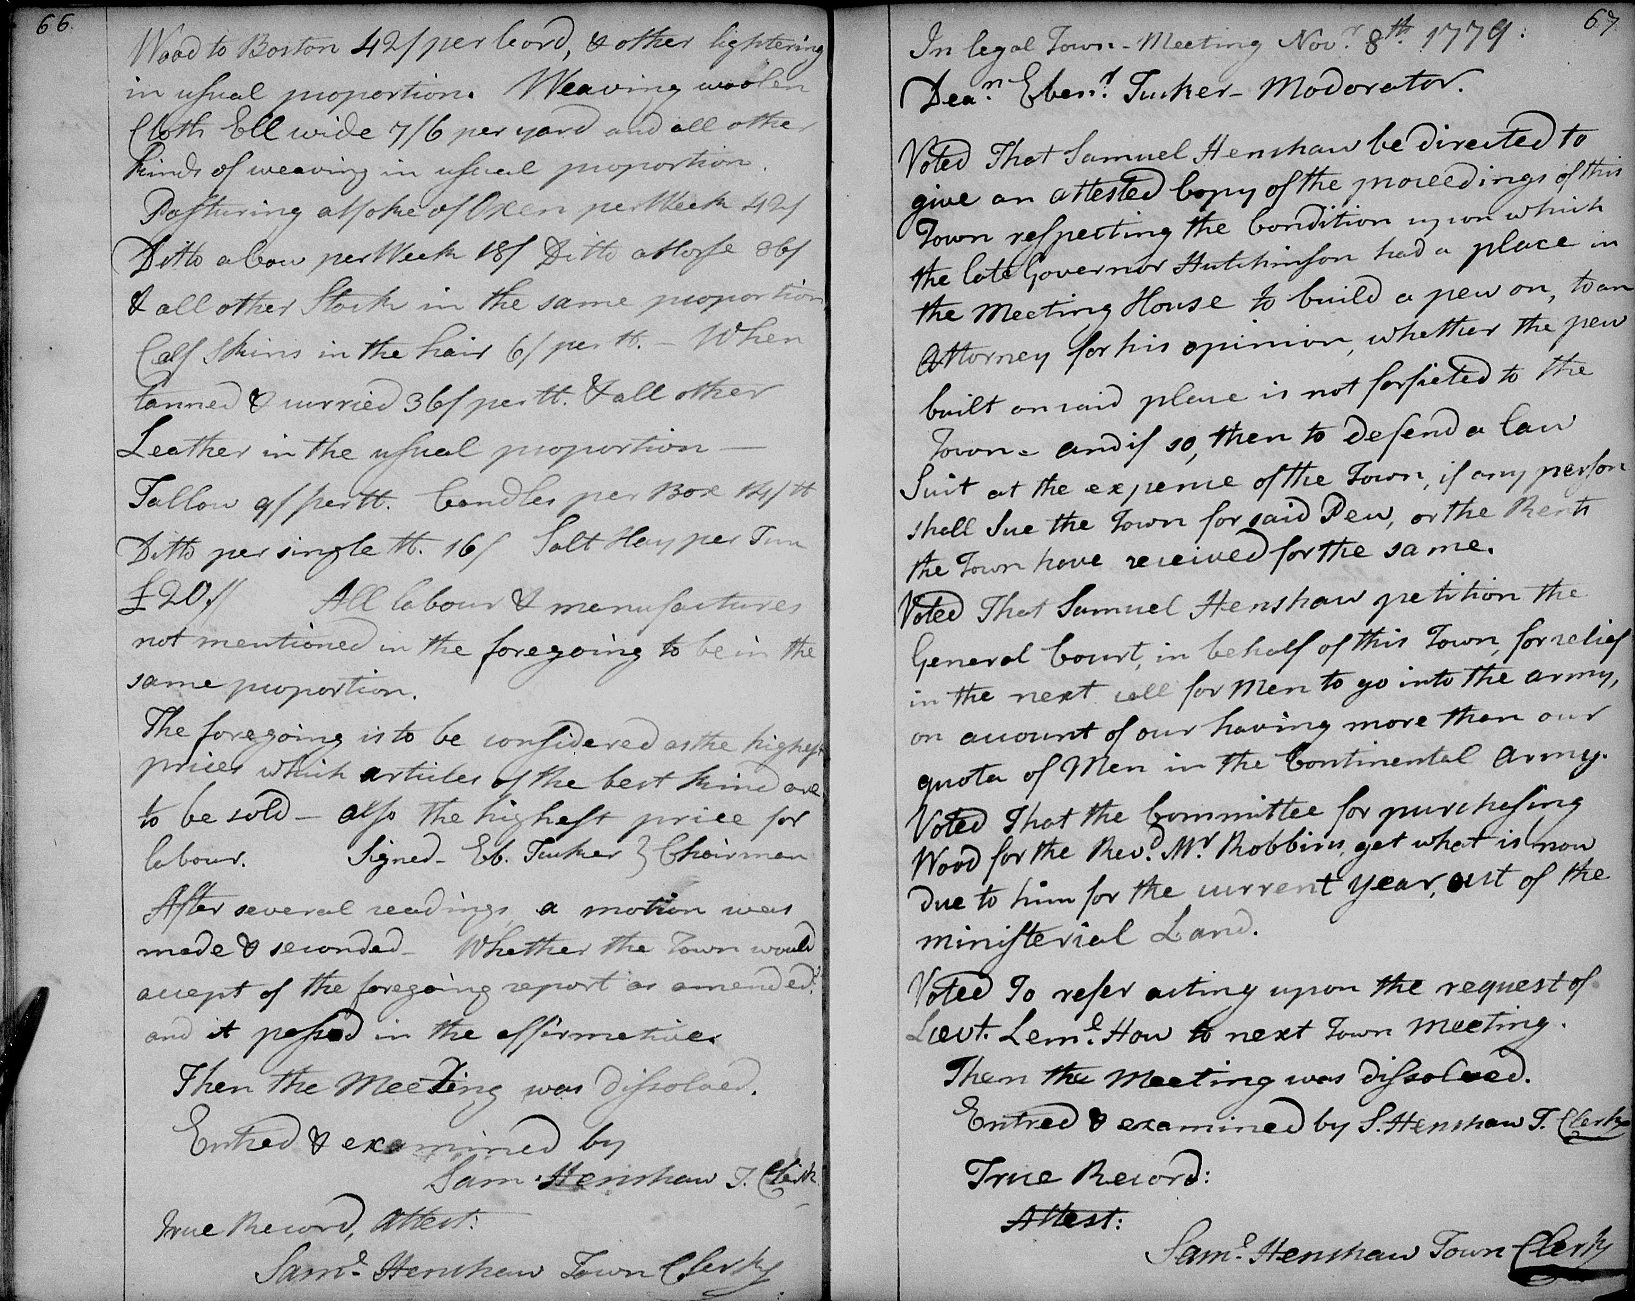 66.
Wood to Boston 42/ per Cord, & other lightering
in usual proportion. Weaving woolen
Cloth Ell wide 7/6 per yard and all other
kinds of weaving in usual proportion.
Pasturing a yoke of Oxen per Week 42/
Ditto a Cow per Week 18/ Ditto a Horse 36/
& all other Stock in the same proportion
Calf Skins in the hair 6/ per lt. — When
tanned & curried 36/ per lt. & all other
Leather in the usual proportion —
Tallow 9/ per lt. Candles per Box 14/ lt
Ditto per single lt. 16/ Salt Hay per Tun
£20.// All labour & manufactures
not mentioned in the foregoing to be in the
same proportion.
The foregoing is to be considered as the highest
prices which articles of the best kind are
to be sold — also the highest price for
labour. Signed - Eb. Tucker } Chairman
After several readings a motion was
made & seconded - Whether the Town would
accept of the foregoing report as amended.
and it passed in the affirmative.
Then the Meeting was dissolved.
Entred & examined by
Sam. Henshaw T. Clerk
True Record, Attest:
Saml. Henshaw Town Clerk
67
In legal Town-Meeting Novr. 8th. 1779:
Dean. Ebenr. Tucker - Moderator.
Voted That Samuel Henshaw be directed to
give an attested Copy of the proceedings of this
Town respecting the Condition upon which
the late Governor Hutchinson had a place in
the Meeting House to build a pew on, to an
Attorney for his opinion, whether the pew
built on said place is not forfieted to the
Town - and if so, then to defend a law
Suit at the expense of the Town, if any person
shall Sue the Town for said Pew, or the Rents
the Town have received for the same.
Voted That Samuel Henshaw petition the
General Court, in behalf of this Town, for relief
in the next call for Men to go into the army,
on account of our having more than our
quota of Men in the Continental Army.
Voted That the Committee for purchasing
Wood for the Revd. Mr. Robbins, get what is now
due to him for the current year, out of the
ministerial Land.
Voted To refer acting upon the request of
Lieut. Leml. How to next Town Meeting.
Then the Meeting was dissolved.
Entred & examined by S. Henshaw T. Clerk
True Record:
Attest:
Saml. Henshaw Town Clerk